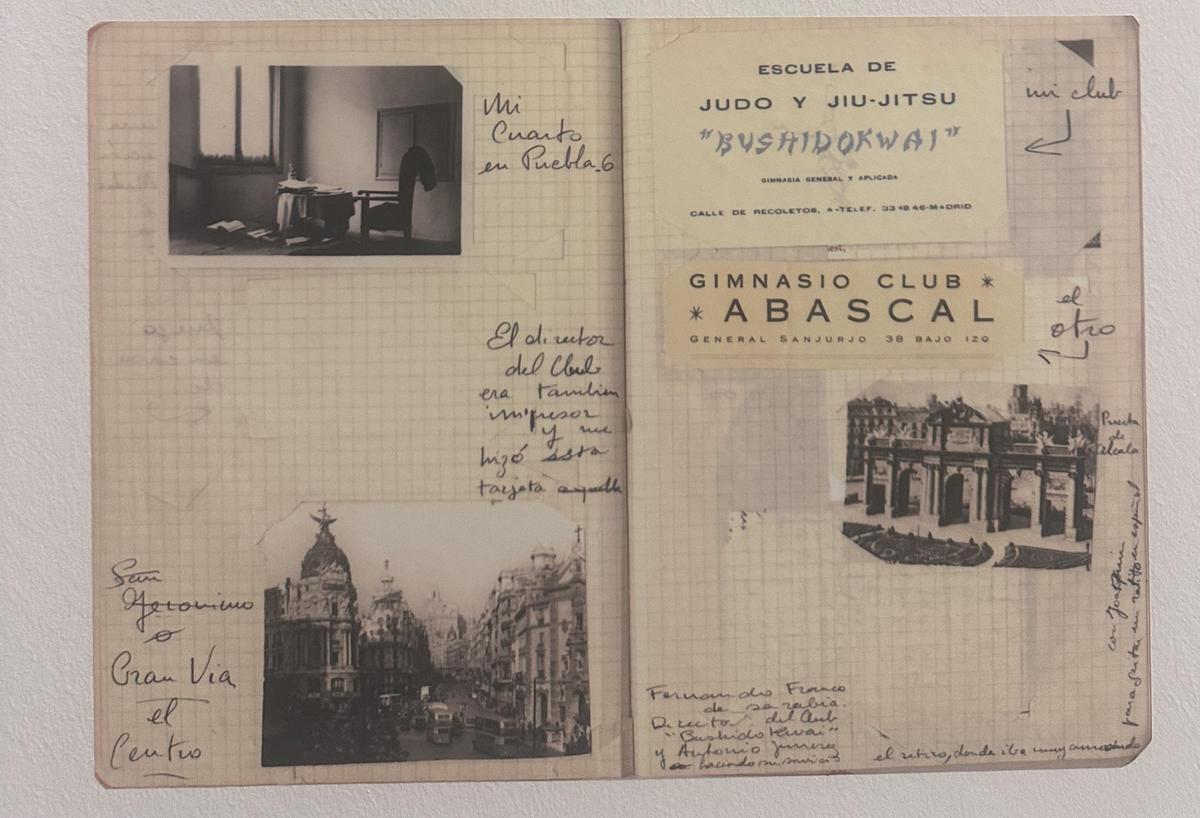 Mi
Cuarto
en Puebla.6
El director
del Club
era tambien
impresor
y me
hizó esta
tarjeta
San
Geronimo
o
Gran Via
el
Centro
ESCUELA DE
JUDO Y JIU-JITSU
"BUSHIDOKWAI"
GIMNASIA GENERAL Y APLICADA
CALLE DE RECOLETOS, 4-TELEF. 33 18 46-MADRID
mi club
GIMNASIO CLUB *
* ABASCAL
GENERAL SANJURJO 38 BAJO IZQ
el
otro
Puerta
de
Alcala
Fernando Franco
de sarabia.
Director del Club
"Bushidokwai"
y Antonio
haciendo su
el retiro, donde iba muy
con Joaquin
en español